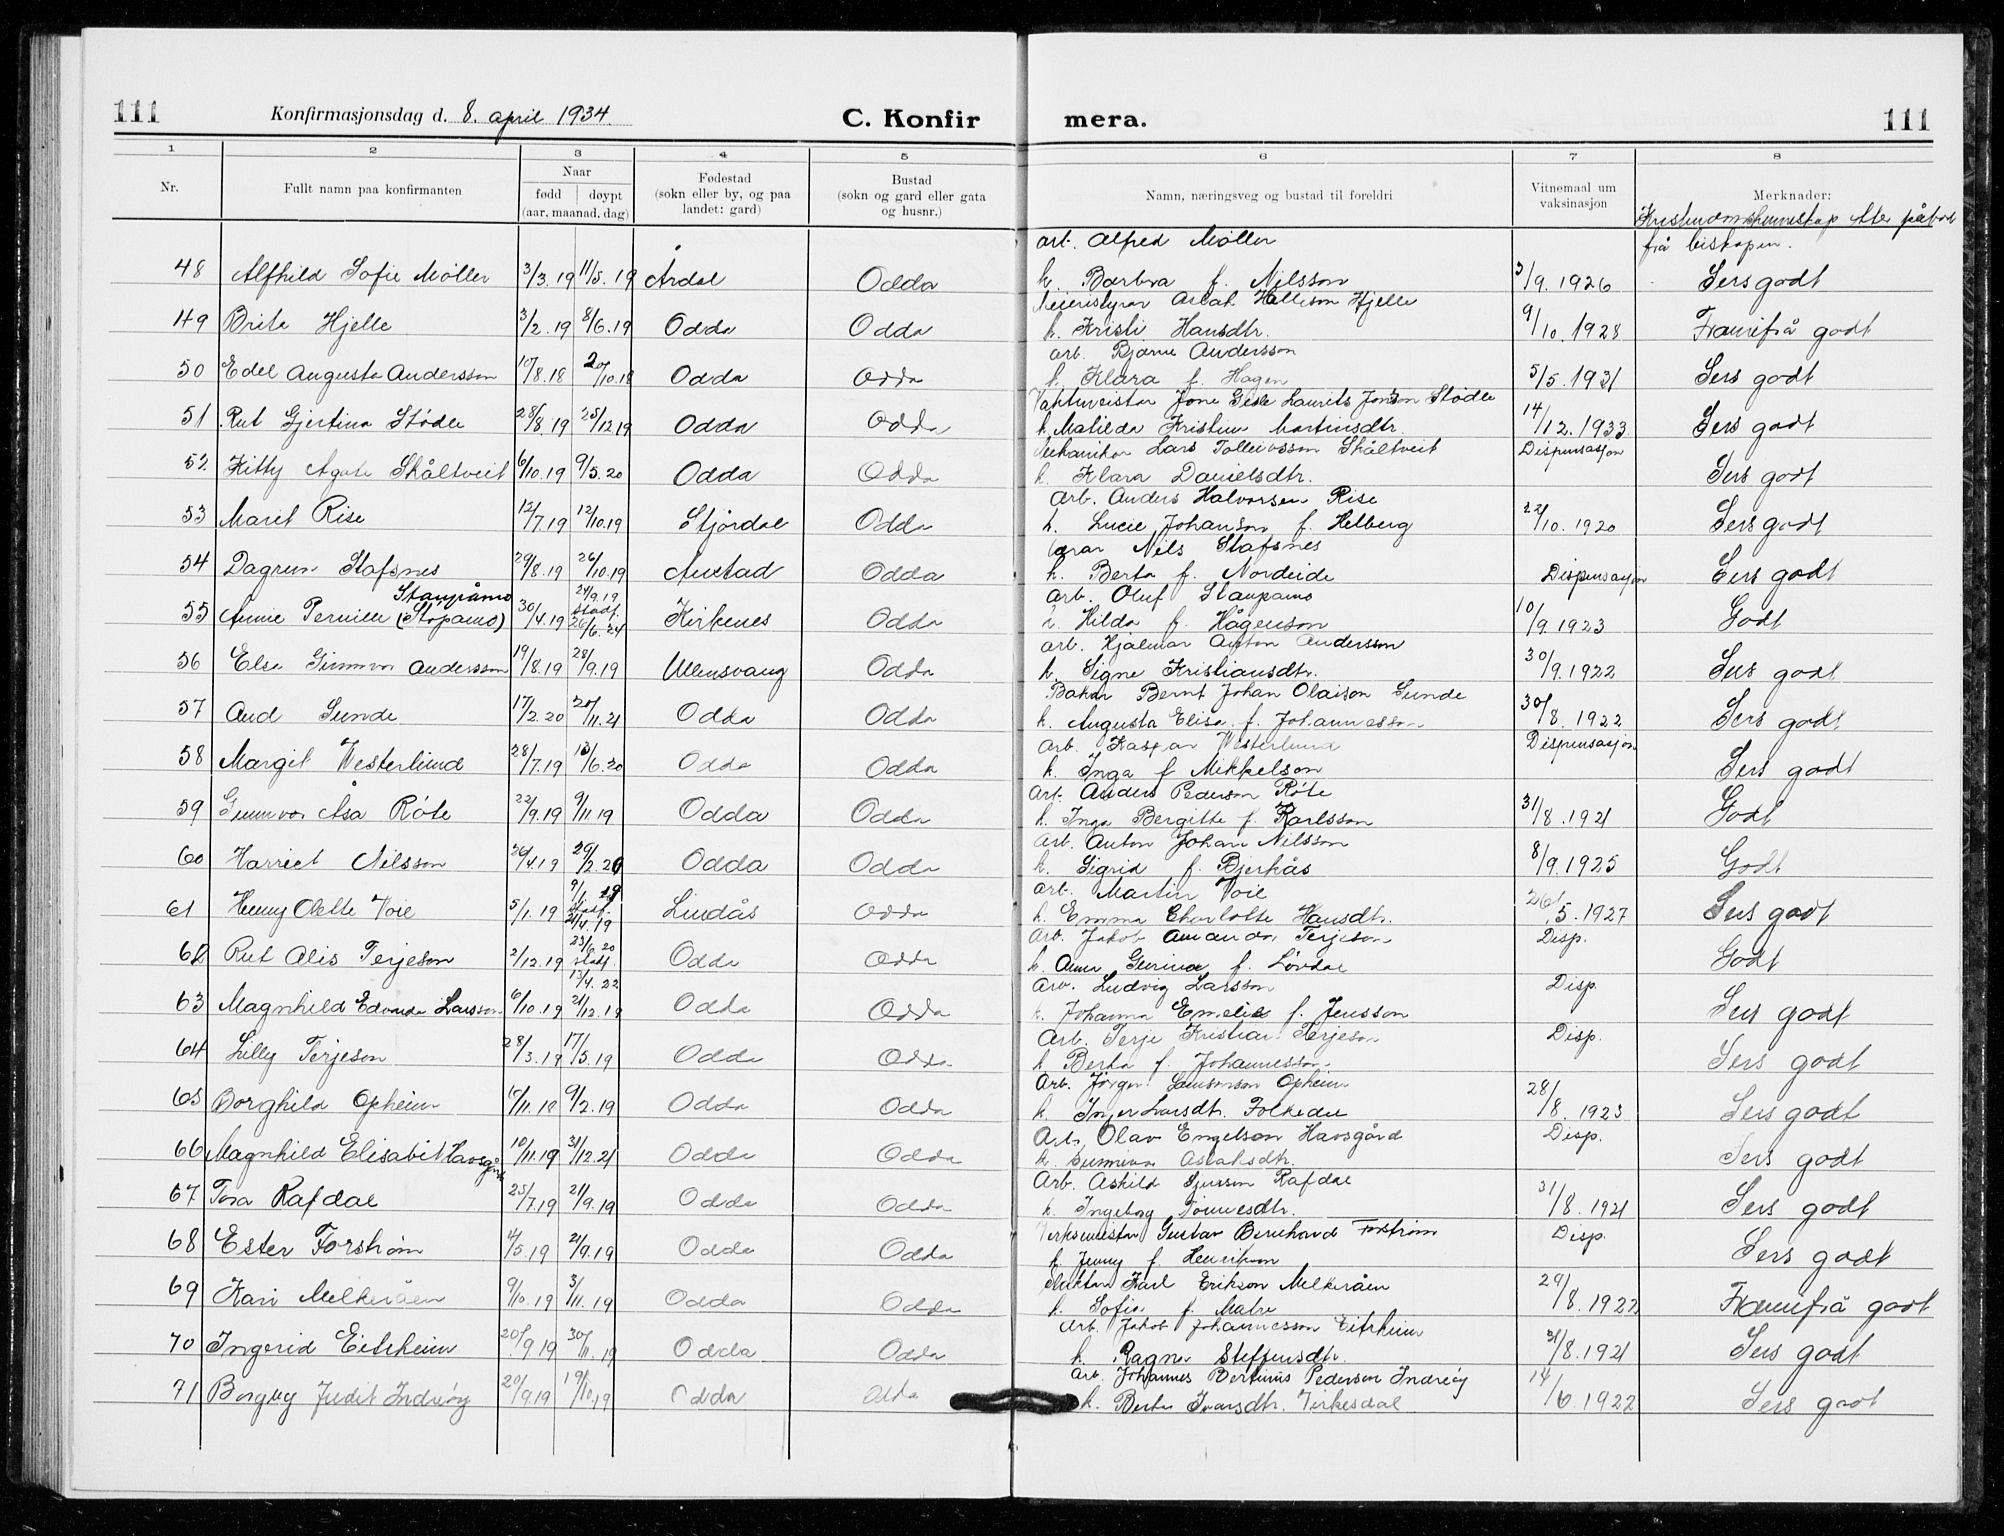 111 Konfirmasjonsdag d. 8. april 1934. C. Konfirmera. 111
1 2 3 4 5 6 7 8
Nr. Fullt namn paa konfirmanten Naar fødd døypt (aar, maanad, dag) Fødestad (sokn eller by, og paa landet: gard) Bustad (sokn og gard eller gata og husnr.) Namn, næringsveg og bustad til foreldri Vitnemaal um vaksinasjon Merknader:
Kristendomskunnskap etter påbod frå biskopen.
arb. Alfred Møller
48 Alfhild Sofie Møller 3/3.19 11/5.19 Årdal Odda h. Barbra f. Nilsson 3/9.1926 Sers godt
Meieristyrar Aslak Hellison Hjelle
49 Brita Hjelle 3/2.19 8/6.19 Odda Odda h. Kristi Hansdtr. 9/10.1928 Framifrå godt
arb. Bjarne Andersson
50 Edel Augusta Andersson 10/8.18 20/10.18 Odda Odda h. Klara f. Hagen 5/5.1931 Sers godt
Vaktmeister Jone Laurits Stødle
51 Rut Gjertina Stødle 28/8.19 25/12.19 Odda Odda h. Matilda Kristine Martinsdtr. 14/12.1933. Sers godt
Mekanikar Lars Tolleivsson Skåltveit Dispensasjon
52 Kitty Agate Skåltveit 6/10.19 9/5.20 Odda Odda h. Klara Danielsdtr. Sers godt
Arb. Anders Halvorsen Rise
53 Marit Rise 12/7.19 12/10.19 Stjørdal Odda h. Lucie Johanson f. Helberg 22/10.1920 Sers godt
Lærar Nils Stafsnes
54 Dagrun Stafsnes 29/8.19 26/10.19 Odda h. Berta f. Nordeide Dispensasjon Sers godt
arb. Oluf Staupamo
55 Annie Pernille Staupåmo (Støpamo) 30/4.19 24/9.19 stadf. 26/6.24 Kirkenes Odda h. Hilda f. Hågenson 10/9.1923 Godt
arb. Hjalmar Anton Andersson
56 Elsa Gunnvor Andersson 19/8.19 28/9.19 Ullensvang Odda h. Signe Kristiansdtr. 30/9.1922 Sers godt
Bakar Bernt Johan Olaison Sunde
57 Aud Sunde 17/2.20 20/11.21 Odda Odda h. Augusta Elisa f. Johannesson 30/8.1922 Sers godt
arb. Kaspar Westerlund Dispensasjon
58 Margit Westerlund 28/7.19 13/6.20 Odda Odda h. Inga f. Mikkelson Sers godt
arb. Anders Pederson Røte
59 Gunnvor Åsa Røte 22/9.19 9/11.19 Odda Odda h. Inga Bergitte f. Karlsson 31/8.1921 Godt
arb. Anton Johan Nilsson
60 Harriet Nilsson 26/4.19 29/2.20 Odda Odda h. Sigrid f. Bjerkås 8/9.1925 Godt
arb. Martin Voie
61 Henny Olette Voie 5/1.19 9/1.19 stadf. 21/4.19 Lindås Odda h. Emma Charlotte Hansdtr. 26/5.1927 Sers godt
Arb. Jakob Amandus Terjeson Disp.
62 Rut Alis Terjeson 2/12.19 23/6.20 stadf. 13/4.22 Odda Odda h. Anna Gurina f. Løvdal Godt
Arb. Ludvig Larsson Disp.
63 Magnhild Edvarda Larsson 6/10.19 21/12.19 Odda Odda h. Johanna Emelie f. Jensson Sers godt
Arb. Terje Kristian Terjeson Disp.
64 Lilly Terjeson 28/3.19 17/5.19 Odda Odda h. Berta f. Johannesson Sers godt
Arb. Jørgen Samsonson Opheim
65 Borghild Opheim 10/11.18 9/2.19 Odda Odda h. Inger Larsdtr. Folkedal 28/8.1923 Sers godt
Arb. Olav Engelson Havsgård Disp.
66 Magnhild Elisabit Havsgård 10/11.19 31/12.21 Odda Odda h. Sunniva Aslaksdtr. Sers godt
Arb. Askild Sjursson Rafdal
67 Tora Rafdal 25/7.19 21/9.19 Odda Odda h. Ingeborg Tormesdtr. 31/8.1921 Sers godt
Verksmeister Gustav Bernhard Forstrøm Disp.
68 Ester Forstrøm 4/5.19 21/9.19 Odda Odda h. Jenny f. Henrikson Sers godt
Karl Erikson Melkeråen
69 Kari Melkeråen 9/10.19 3/11.19 Odda Odda h. Sofie f. Matre 29/8.1922 Framifrå godt
Arb. Jakob Johannesson Eitrheim
70 Ingerid Eitrheim 20/9.19 30/11.19 Odda Odda h. Ragna Steffensdtr. 31/8.1921 Sers godt
Arb. Johannes Bertinus Pederson Indrøy
71 Borgny Judit Indrøy 20/9.19 19/10.19 Odda Odda h. Berta Ivarsdtr. Virkesdal 14/6.1922 Sers godt